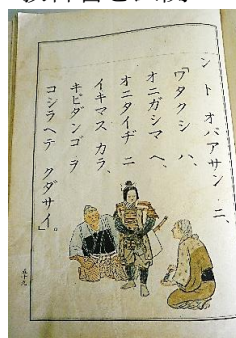 ント オバアサン ニ、
「ワタクシ ハ、
オニガシマ ヘ、
オニタイヂ ニ
イキマス カラ、
キビダンゴ ヲ
コシラヘテ クダサイ」。
五十九